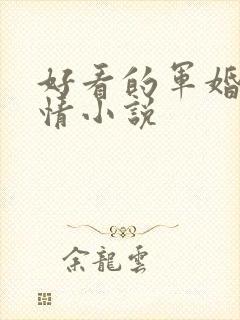 好看的军婚
情小说
余龍雲